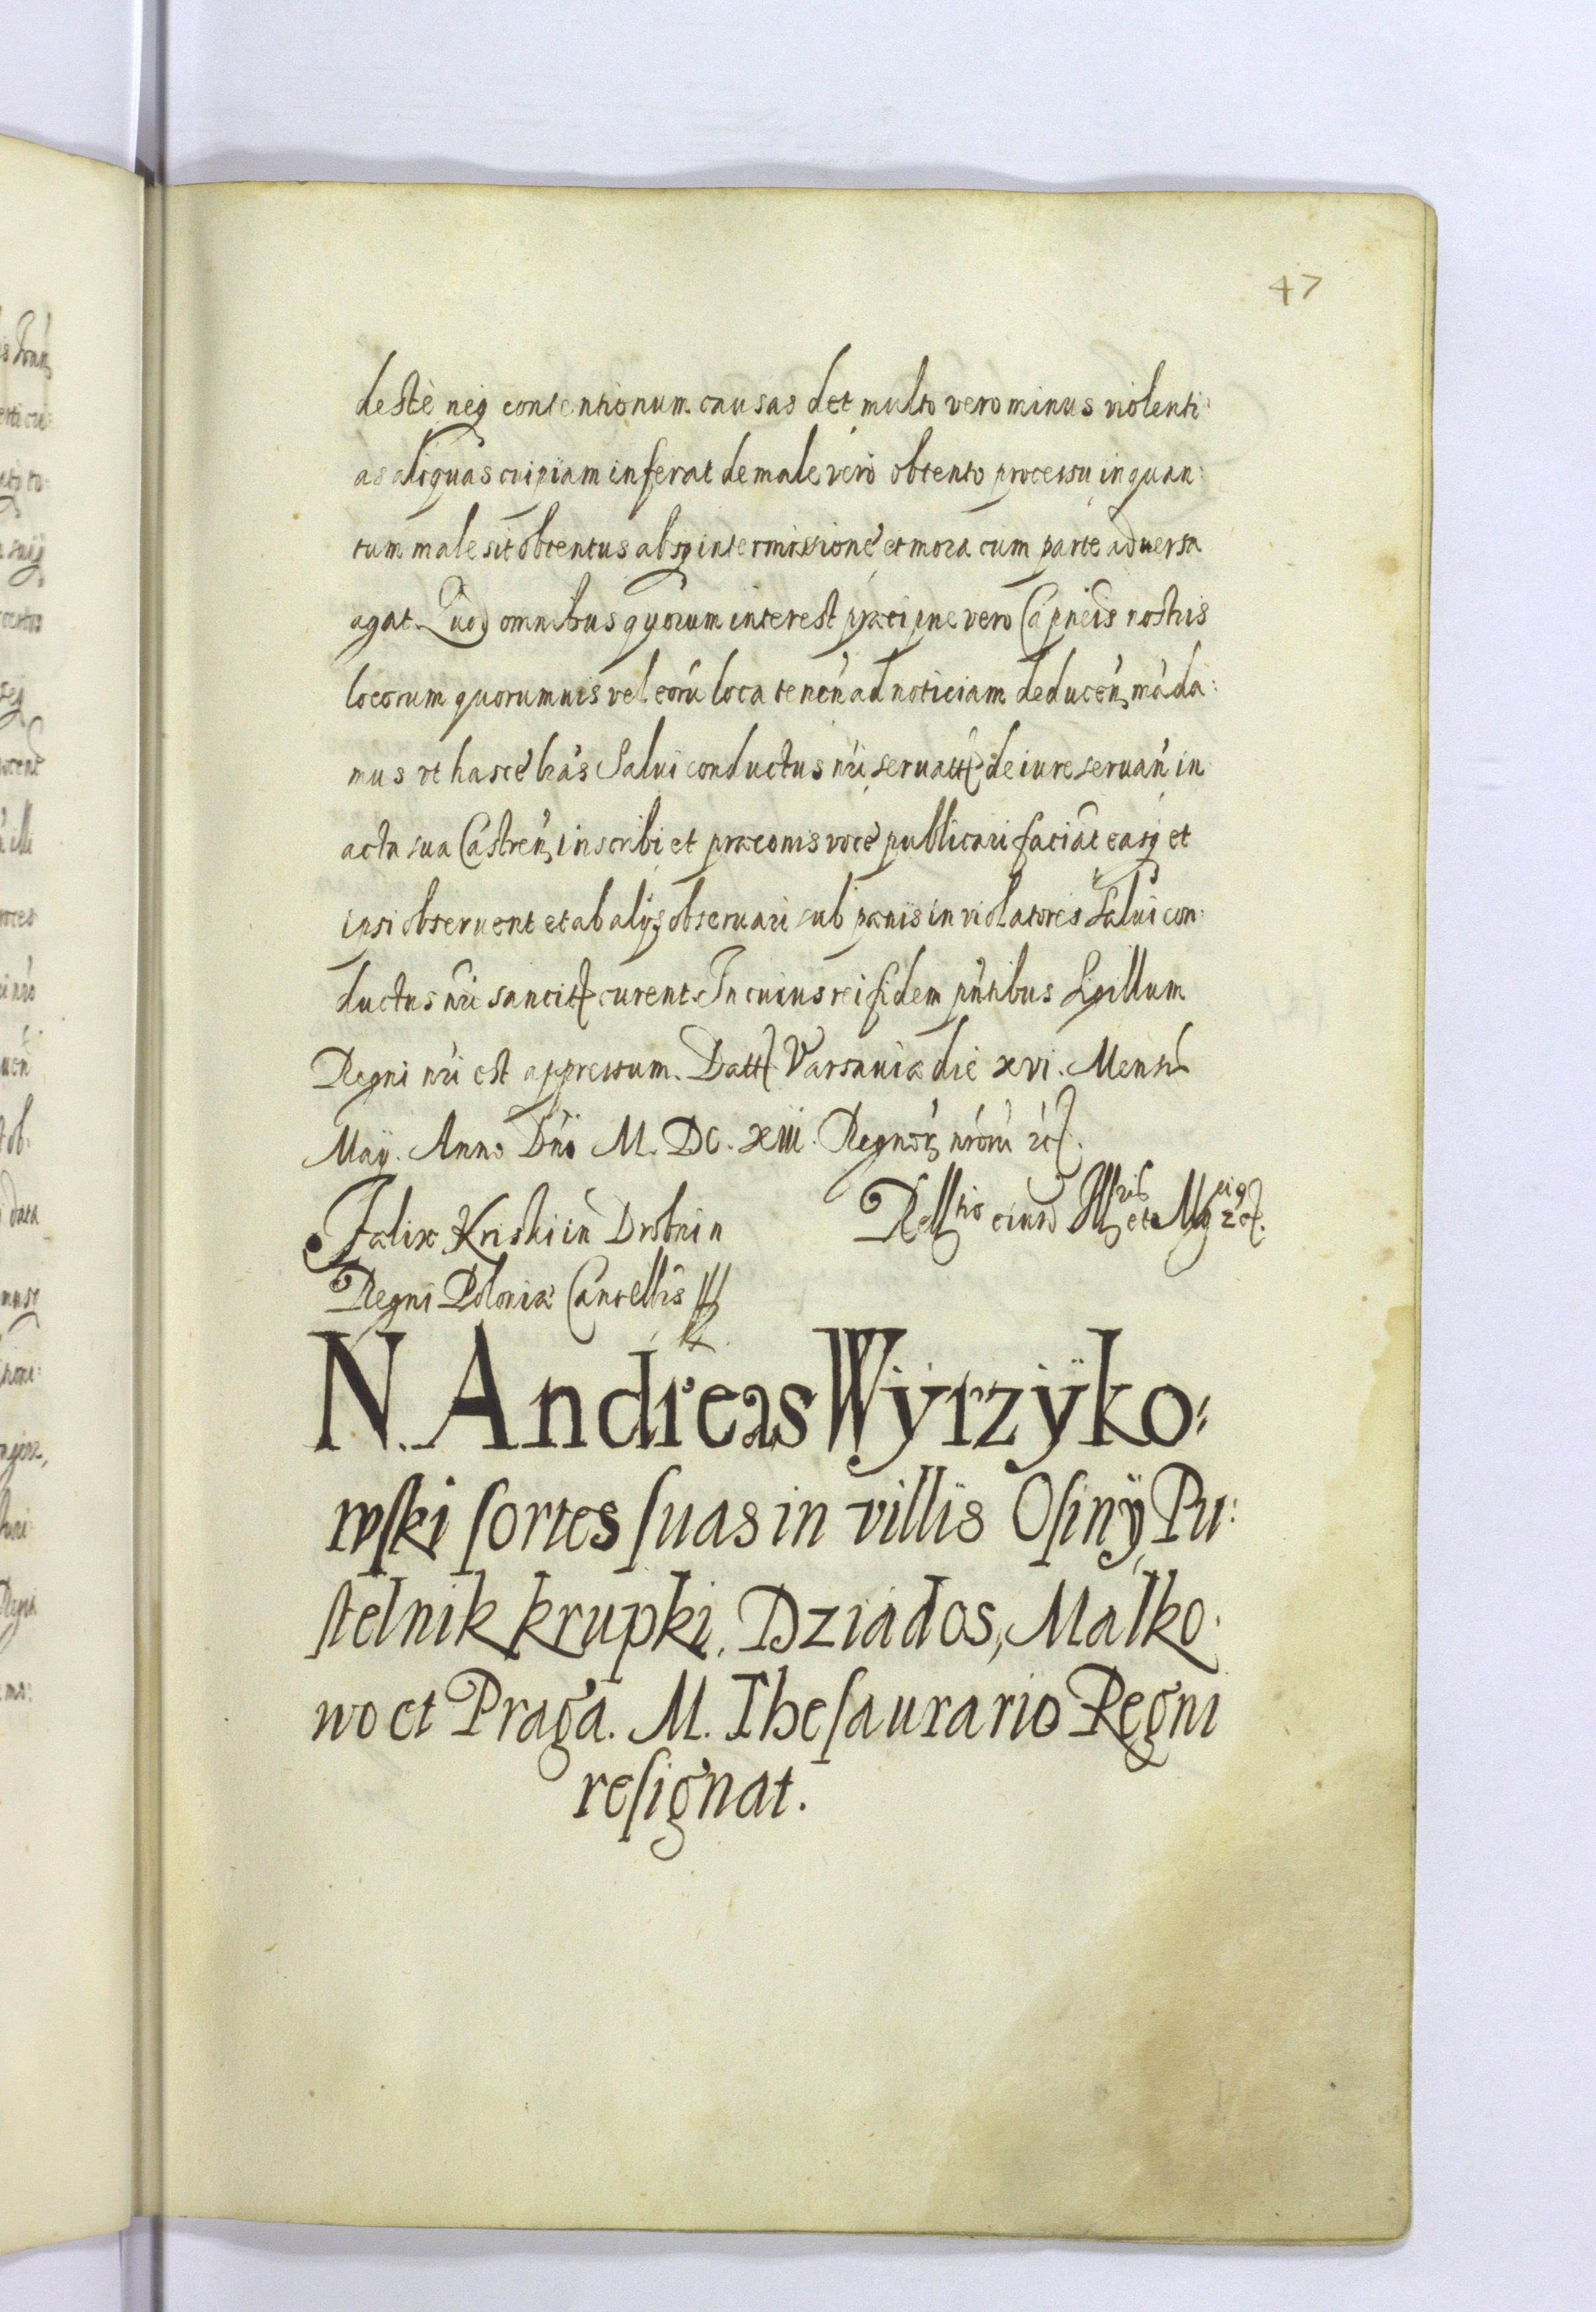 47
destè neq contentionum causas det multo vero minus violenti:
as aliquas cuipiam inferat de male verò obtento processu in quan:
tum male sit obtentus absq intermissione et mora cum parte aduersa
agat. Quod omnibus quorum interest præcipue vero Capneis nostris
locorum quorumuis vel eorū loca tenen ad noticiam deducen, māda:
mus vt hasce lras Salui conductus nri, seruatt de iure seruan in
acta sua Castren, inscribi et præconis voce publicari faciāt easq et
ipsi obseruent et ab alijs obseruari sub pænis in violatores Salui con:
ductus nri sancitt curent. In cuius rei fidem pntibus Sigillum
Regni nri est appressum. Datt Varsauiæ die xvi. Mensis
Maÿ. Anno Dni M. DC. XIII. Regnor nrorū etc.
Fælix Kriski in Drobnin
Relltio eiusd Illris et Mgci etc.
Regni Poloniæ Cancellris
N. Andreas Wÿrzÿko:
wski sortes suas in villis Osinÿ, Pu:
stelnik krupki, Dziados, Malko:
wo et Praga. M. Thesaurario Regni
resignat.